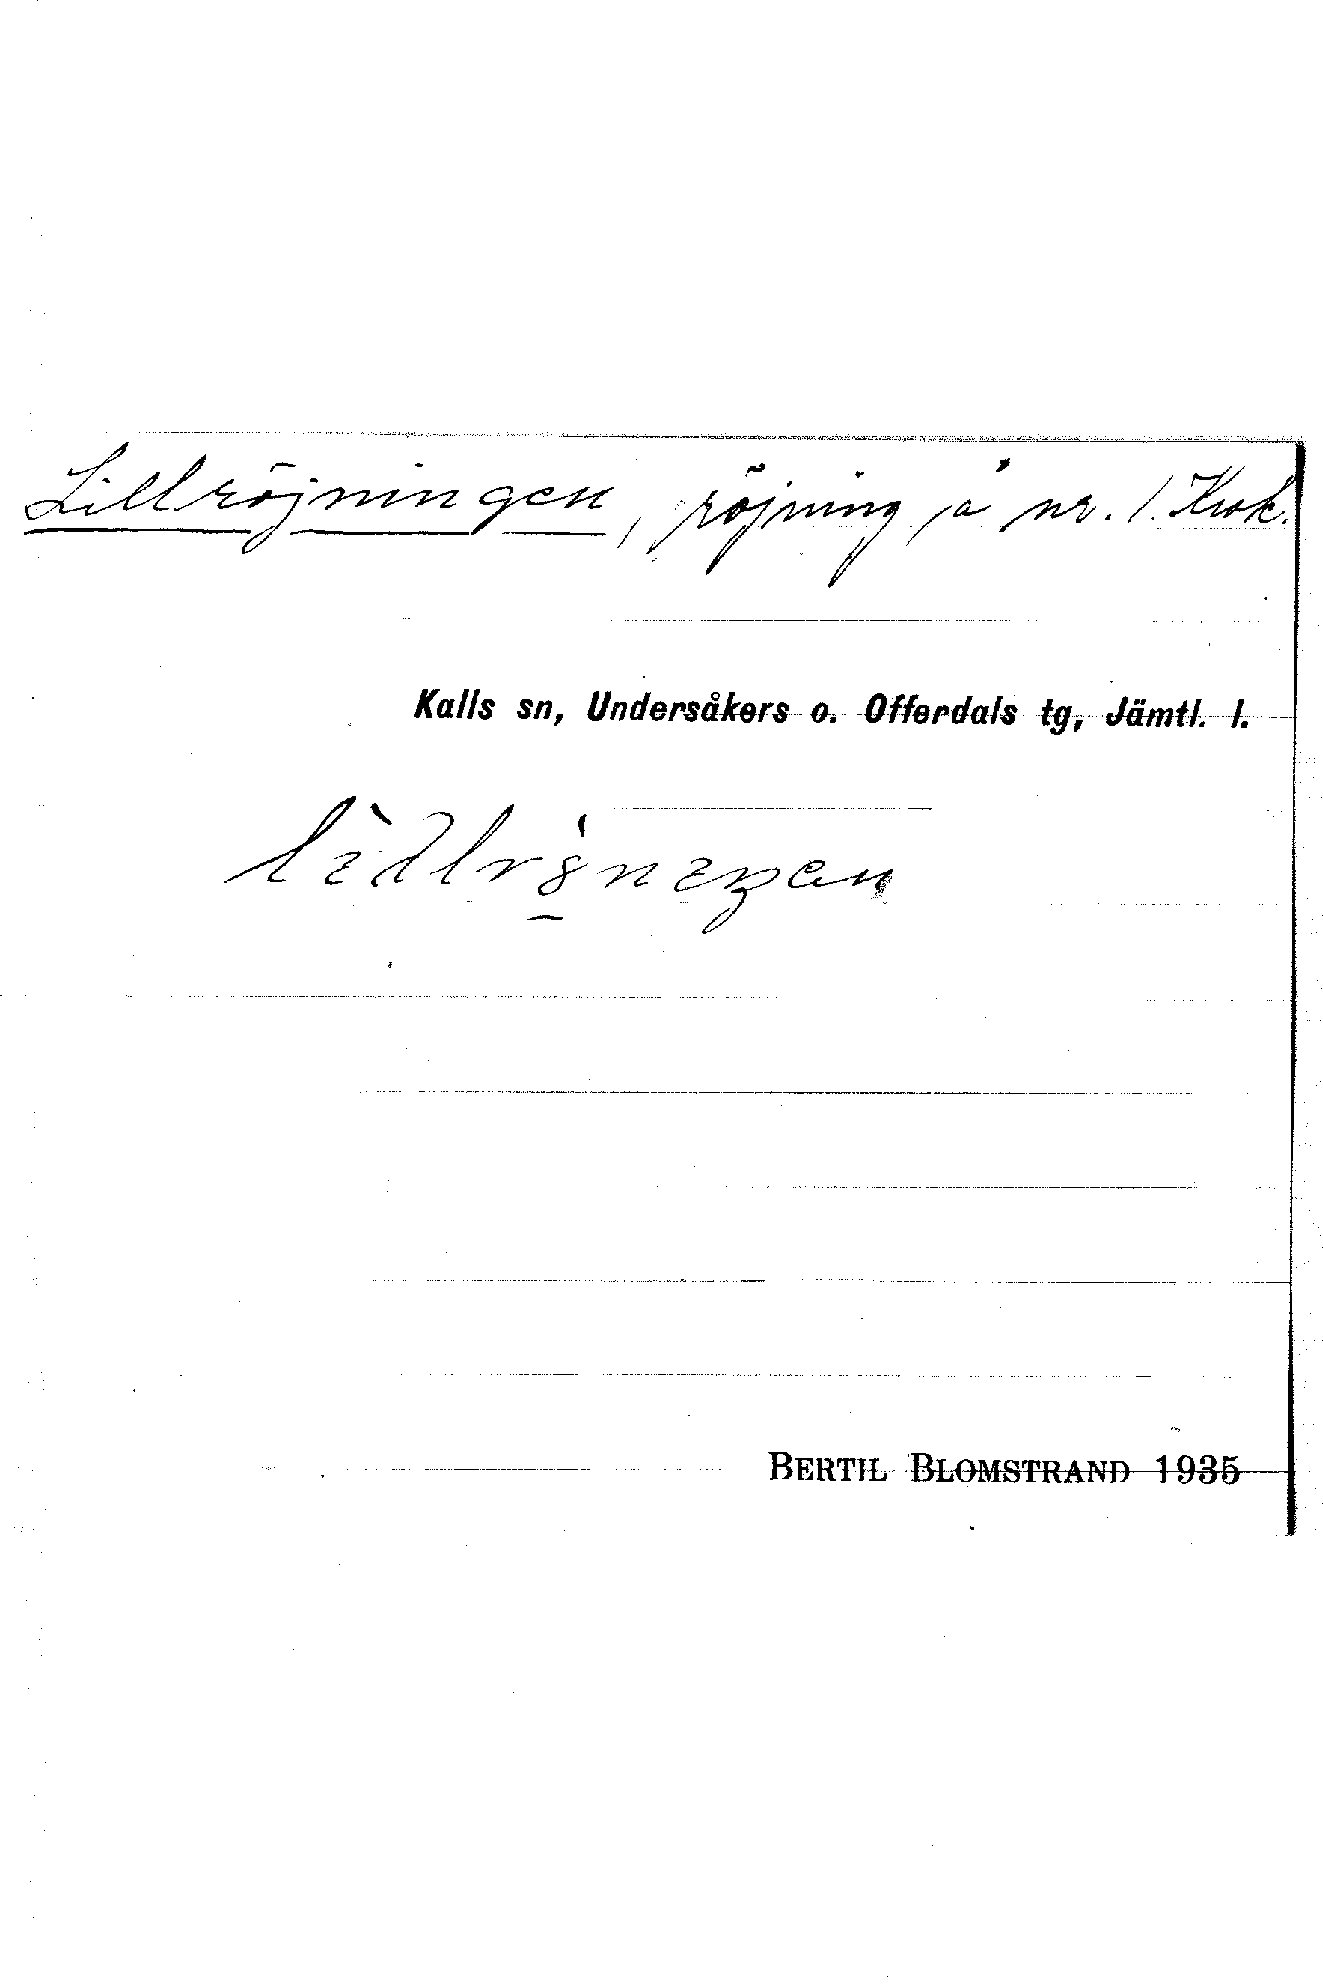 Lillröjningen, röjning å nr. 1. Krok.
Kalls sn, Undersåkers o. Offerdals tg, Jämtl. l.
BERTIL BLOMSTRAND 1935